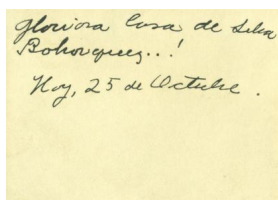 Gloriosa Casa de Silva
Bohorquez...!
Hoy, 25 de Octubre.